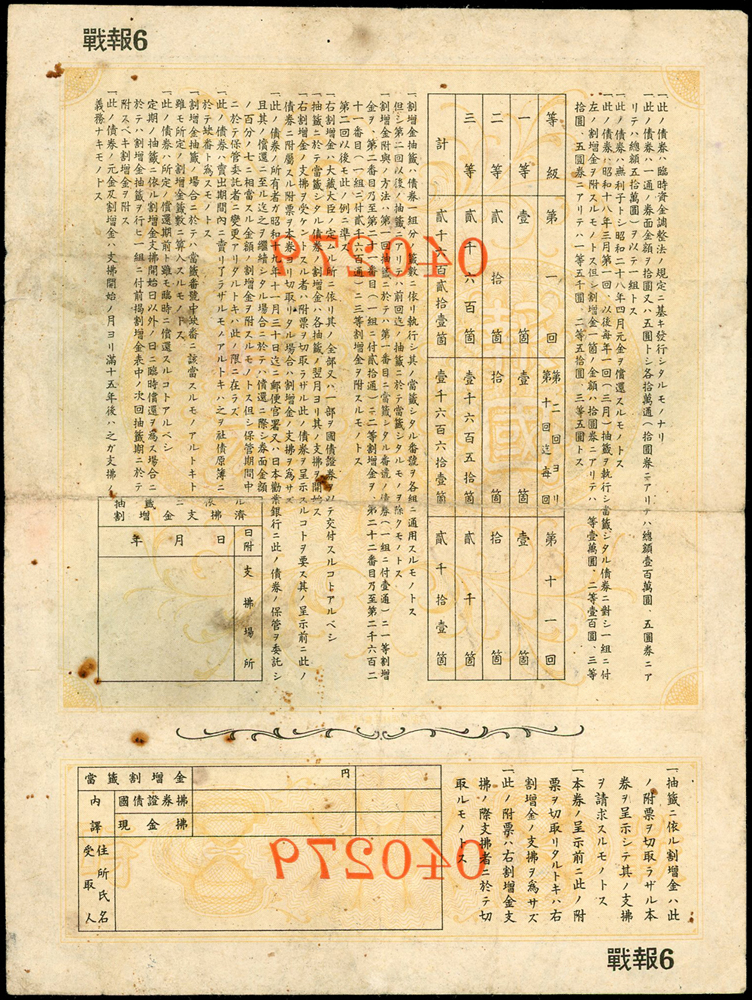 戰報6
一、此ノ債券ハ臨時資金調整法ノ規定ニ基キ發行シタルモノナリ
一、此ノ債券ハ一通ノ券面金額ヲ拾圓又ハ五圓トシ各拾萬通（拾圓券ニアリテハ總額壹百萬圓、五圓券ニア
リテハ總額五拾萬圓）ヲ以テ一組トス
一、此ノ債券ハ無利子トシ昭和二十八年四月元金ヲ償還スルモノトス
一、此ノ債券ハ昭和十八年三月第一回、以後每年一回（三月）抽籤ヲ執行シ當籤シタル債券ニ對シ一組ニ付
左ノ割增金ヲ附スルモノトス但シ割增金一箇ノ金額ハ拾圓券ニアリテハ一等壹萬圓、二等壹百圓、三等
拾圓、五圓券ニアリテハ一等五千圓、二等五拾圓、三等五圓トス
等級 第一回 第二回ヨリ第十回迄每回 第十一回
一等 壹箇 壹箇 壹箇
二等 貳拾箇 拾箇 拾箇
三等 貳千六百箇 壹千六百五拾箇 貳千箇
計 貳千六百貳拾壹箇 壹千六百六拾壹箇 貳千拾壹箇
一、割增金抽籤ハ債券一組分ノ籤數ニ依リ執行シ其ノ當籤シタル番號ヲ各組ニ通用スルモノトス
但シ第二回以後ノ抽籤ニアリテハ前回迄ノ抽籤ニ於テ當籤シタルモノヲ除クモノトス
一、割增金附與ノ方法ハ第一回抽籤ニ於テハ第一番目ニ當籤シタル番號ノ債券（一組ニ付壹通）ニ一等割增
金ヲ、第二番目乃至第二十一番目（一組ニ付貳拾通）ニ二等割增金ヲ、第二十二番目乃至第二千六百二
十一番目（一組ニ付貳千六百通）ニ三等割增金ヲ附スルモノトス
第二回以後モ此ノ例ニ準ス
一、右割增金ハ大藏大臣ノ定ムル所ニ依リ其ノ全部又ハ一部ヲ國債證券ヲ以テ交付スルコトアルベシ
一、抽籤ニ於テ當籤シタル債券ノ割增金ハ各抽籤ノ翌月ヨリ其ノ支拂ヲ開始ス
右割增金ノ支拂ヲ受ケントスル者ハ附票ヲ切取ラザル此ノ債券ヲ呈示スルコトヲ要ス其ノ呈示前ニ此ノ
債券ニ附屬スル附票ヲ本券ヨリ切取リタル場合ハ割增金ノ支拂ヲ爲サズ
一、此ノ債券ノ所有者ガ昭和十九年十一月三十日迄ニ郵便官署又ハ日本勸業銀行ニ此ノ債券ノ保管ヲ委託シ
且其ノ償還ニ至ル迄之ヲ繼續シタル場合ニ於テハ償還ニ際シ券面金額
ノ百分ノ七ニ相當スル金額ノ割增金ヲ附スルモノトス但シ保管期間中
ニ於テ保管委託者ニ變更アリタルトキハ此ノ限ニ在ラズ
一、此ノ債券ハ賣出期間內ニ賣リ了ラザルモノアルトキハ之ヲ社債原簿ニ
於テ缺番ト爲スモノトス
一、割增金抽籤ノ場合ニ於テハ當籤番號中缺番ニ該當スルモノアルトキト
雖モ所定ノ割增金籤數ニ算入スルモノトス
一、此ノ債券ハ所定ノ償還期前ト雖モ臨時ニ償還スルコトアルベシ
定期ノ抽籤ニ依ル割增金支拂開始日以外ノ日ニ臨時償還ヲ爲ス場合ニ
於テハ割增金抽籤ヲ行ヒ一組ニ付前揭割增金表中ノ次回抽籤期ニ於テ
附スベキ割增金ヲ附ス
一、此ノ債券ノ元金及割增金ハ支拂開始ノ月ヨリ滿十五年後ハ之ガ支拂ノ
義務ナキモノトス
040279
報國
抽籤割增金支拂濟
年月日
日附
支拂場所
一、抽籤ニ依ル割增金ハ此
ノ附票ヲ切取ラザル本
券ヲ呈示シテ其ノ支拂
ヲ請求スルモノトス
一、本券ノ呈示前ニ此ノ附
票ヲ切取リタルトキハ右
割增金ノ支拂ヲ爲サズ
一、此ノ附票ハ右割增金支
拂ノ際支拂者ニ於テ切
取ルモノトス
當籤割增金
円
內譯
國債證券拂
現金拂
受取人
住所氏名
040279
戰報6